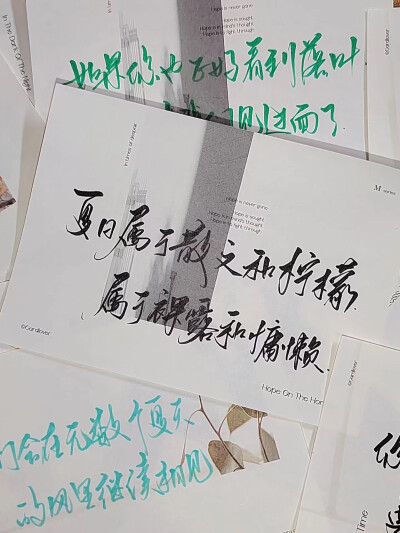 In times of despair
Hope is never gone
Hope is sought
Hope is in mind's thought
Hope is to fight through
如果你也正好看到落叶
见过面了
©Cardlover
In times of despair
M series
Hope is never gone
Hope is sought
Hope is in mind's thought
Hope is to fight through
夏日属于散文和柠檬
属于裸露和慵懒
©Cardlover
Hope On The Hor
们会在无数个夏天
的风里继续相见
©Cardlover
Time
你